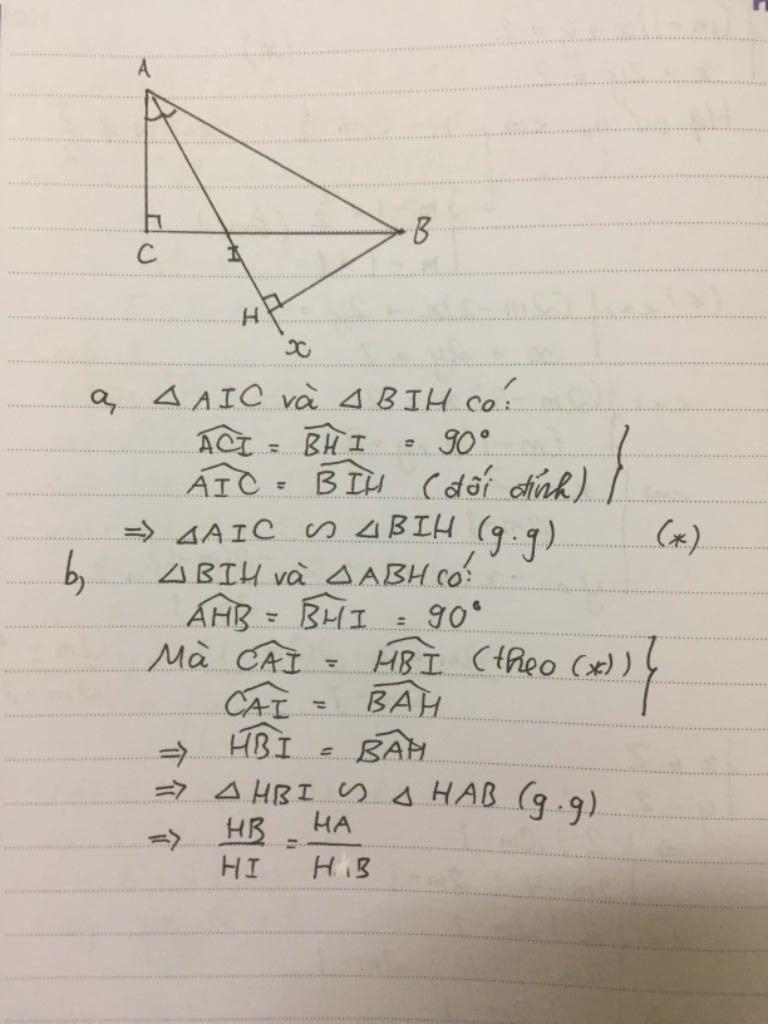 A
C
I
B
H
x
a, △AIC và △BIH có:
\widehat{ACI} = \widehat{BHI} = 90°
\widehat{AIC} = \widehat{BIH} (đối đỉnh) }
=> △AIC ∽ △BIH (g.g) (*)
b, △BIH và △ABH có:
\widehat{AHB} = \widehat{BHI} = 90°
Mà \widehat{CAI} = \widehat{HBI} (theo (*)) }
\widehat{CAI} = \widehat{BAH}
=> \widehat{HBI} = \widehat{BAH}
=> △HBI ∽ △HAB (g.g)
=> HB/HI = HA/HB